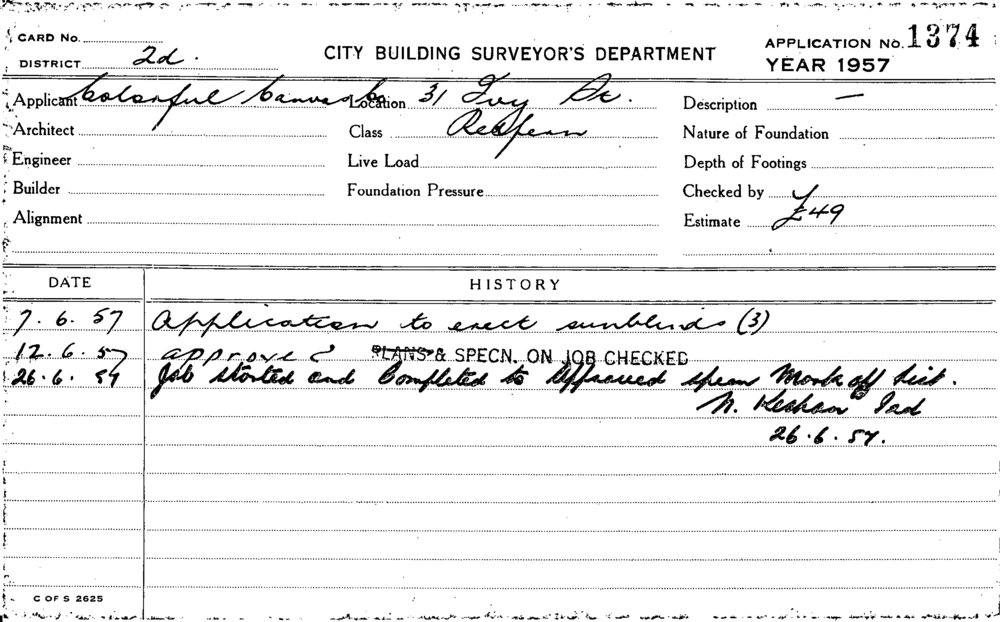 CARD No.
DISTRICT 2d.
CITY BUILDING SURVEYOR'S DEPARTMENT
APPLICATION No. 1374
YEAR 1957
Applicant Colorful Canvas Co Location 31 Ivy St. Description —
Architect Class Redfern Nature of Foundation
Engineer Live Load Depth of Footings
Builder Foundation Pressure Checked by
Alignment Estimate £49
DATE HISTORY
7.6.57 Application to erect sunblinds (3)
12.6.57 approved PLANS & SPECN. ON JOB CHECKED
26.6.57 Job started and Completed to Approved specn Mark off list.
N.
26.6.57.
C OF S 2625